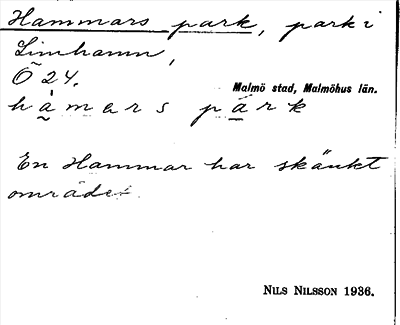 Hammars park, park i
Limhamn,
Ö 24.
Malmö stad, Malmöhus län.
hà̰mars pa̲rk
En Hammar har skänkt
området.
NILS NILSSON 1936.